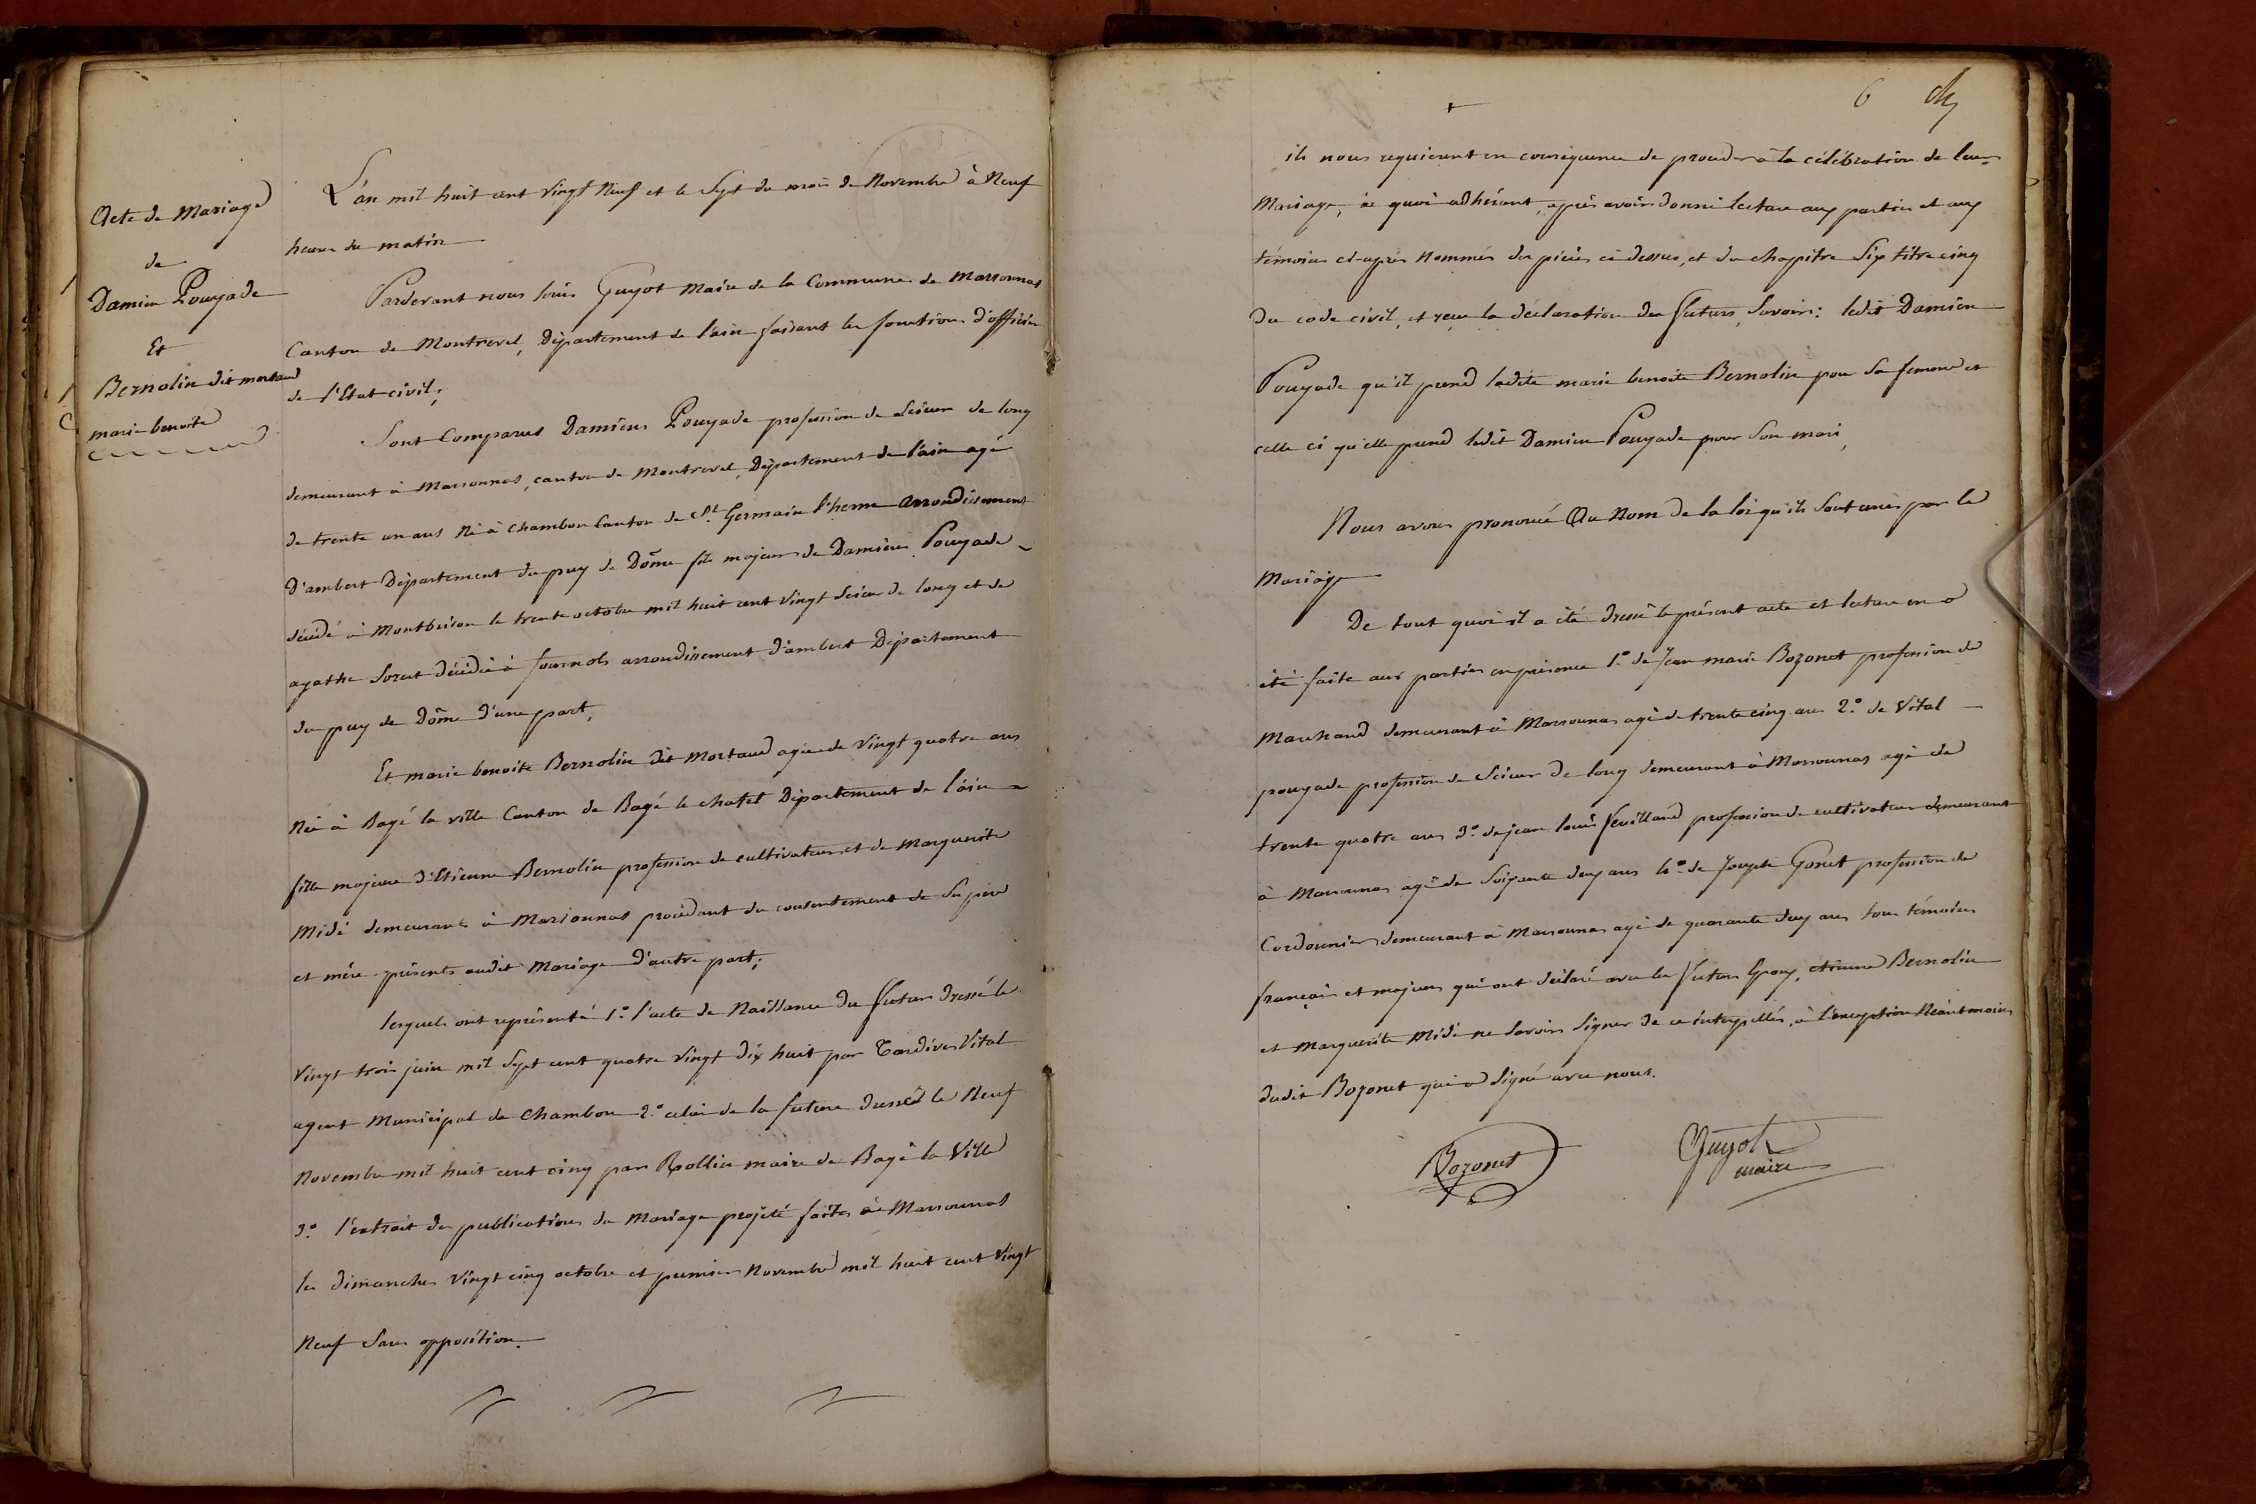 Acte de Mariage
de
Damien Pouyade
Et
Bernolin dit mortaud
marie benoite
L'an mil huit cent vingt Neuf et le Sept du mois de Novembre à Neuf
heures du matin
Pardevant nous Louis Guyot Maire de la Commune de Marsonnas
Canton de Montrevel, Département de l'ain faisant les fonctions d'officier
de l'Etat civil;
Sont Comparus Damiens Pouyade profession de Scieur de long
demeurant à Marsonnas, canton de Montrevel, Département de l'ain agé
de trente un ans Né à Chambon Canton de St Germain l'herm Arrondissement
D'ambert Département du puy de Dôme fils majeur de Damiens Pouyade
décédé à Montbrison le trente octobre mil huit cent vingt Scieur de long et de
agathe Soret décédée à fournols arrondissement d'ambert Département
du puy de Dôme d'une part,
Et marie benoite Bernolin dit Mortaud agée de vingt quatre ans
Née à Bagé la ville Canton de Bagé le chatel Département de l'ain
fille majeure d'Etienne Bernolin profession de cultivateur et de Marguerite
Midé demeurants à Marsonnas procédant du consentement de Ses père
et mère présents audit Mariage d'autre part;
lesquels ont représenté 1.° l'acte de Naissance du futur dressé le
vingt trois juin mil sept cent quatre vingt dix huit par Tardives Vital
agent Municipal de Chambon 2.° celui de la future dressé le Neuf
Novembre mil huit cent cinq par Rollin maire de Bagé la Ville
3.° l'extrait des publications du Mariage projeté faites à Marsonnas
les dimanches vingt cinq octobre et premier Novembre mil huit cent vingt
Neuf Sans opposition.
6
ils nous requierent en conséquence de procéder à la célébration de leur
Mariage, à quoi adhérant, après avoir donné lecture aux parties et aux
témoins ci-après Nommés des pièces ci dessus, et du chapitre Six titre cinq
du code civil, et reçu la déclaration des futurs, Savoir: ledit Damien
Pouyade qu'il prend ladite marie benoite Bernolin pour Sa femme et
celle ci qu'elle prend ledit Damien Pouyade pour Son mari,
Nous avons prononcé Au Nom de la loi qu'ils Sont unis par le
Mariage
De tout quoi il a été dressé le présent acte et lecture en a
été faite aux parties en présence 1.° de Jean marie Bozonet profession de
Marchand demeurant à Marsonnas agé de trente cinq ans 2.° de Vital
pouyade profession de Scieur de long demeurant à Marsonnas agé de
trente quatre ans 3.° de jean louis feuilland profession de cultivateur demeurant
à Marsonnas agé de Soixante deux ans 4.° de Joseph Gonet profession de
Cordonnier demeurant à Marsonnas agé de quarante deux ans tous témoins
français et majeurs qui ont déclaré avec les futurs Epoux, etienne Bernolin
et Marguerite Midé ne Savoir Signer de ce interpellés, à l'exception Néantmoins
dudit Bozonet qui a Signé avec nous.
Bozonet
Guyot
maire